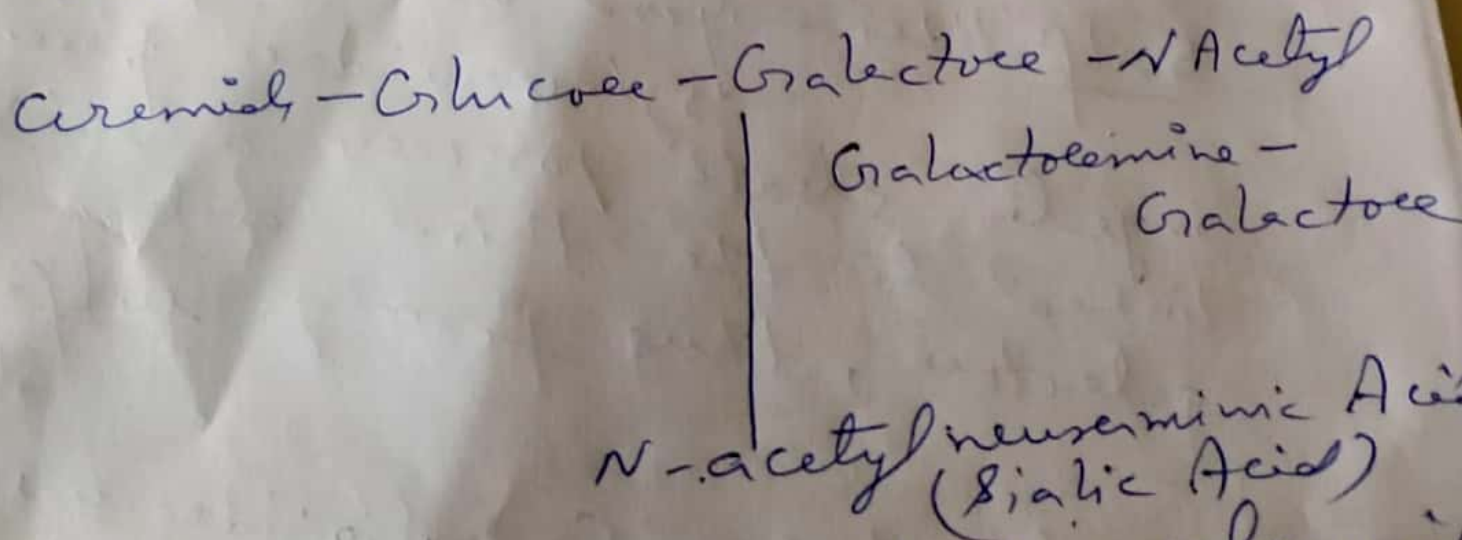 Ceremide - Glucose - Galactose - N Acetyl
Galactosemine -
Galactose
N-acetyl neuraminic Acid
(Sialic Acid)